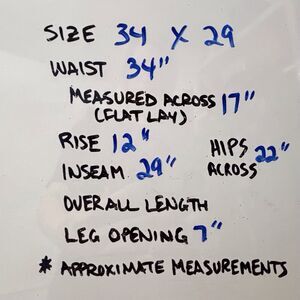 SIZE 34 X 29
WAIST 34"
MEASURED ACROSS 17"
(FLAT LAY)
RISE 12"
INSEAM 29"
HIPS 22"
ACROSS
OVERALL LENGTH
LEG OPENING 7"
* APPROXIMATE MEASUREMENTS